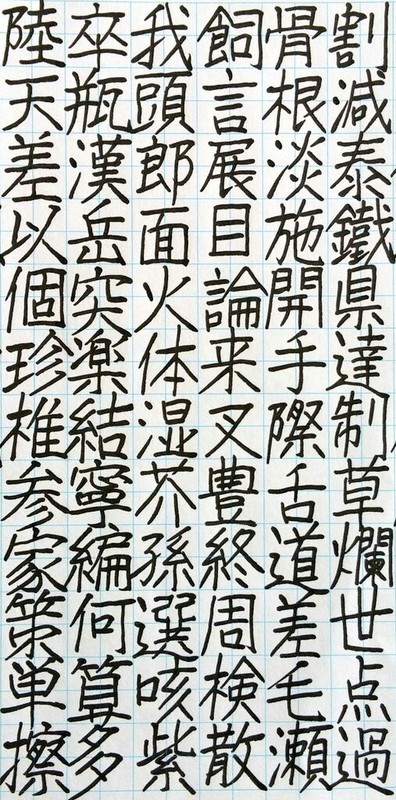 割減泰鐵県達制草爛世点過
骨根淡施開手際舌道差毛瀬
飼言展目論来又豊終周検散
我頭郎面火体湿芥孫選咳紫
卒瓶漢岳突楽結寧編何算多
陸天差以個珍椎参家策単擦